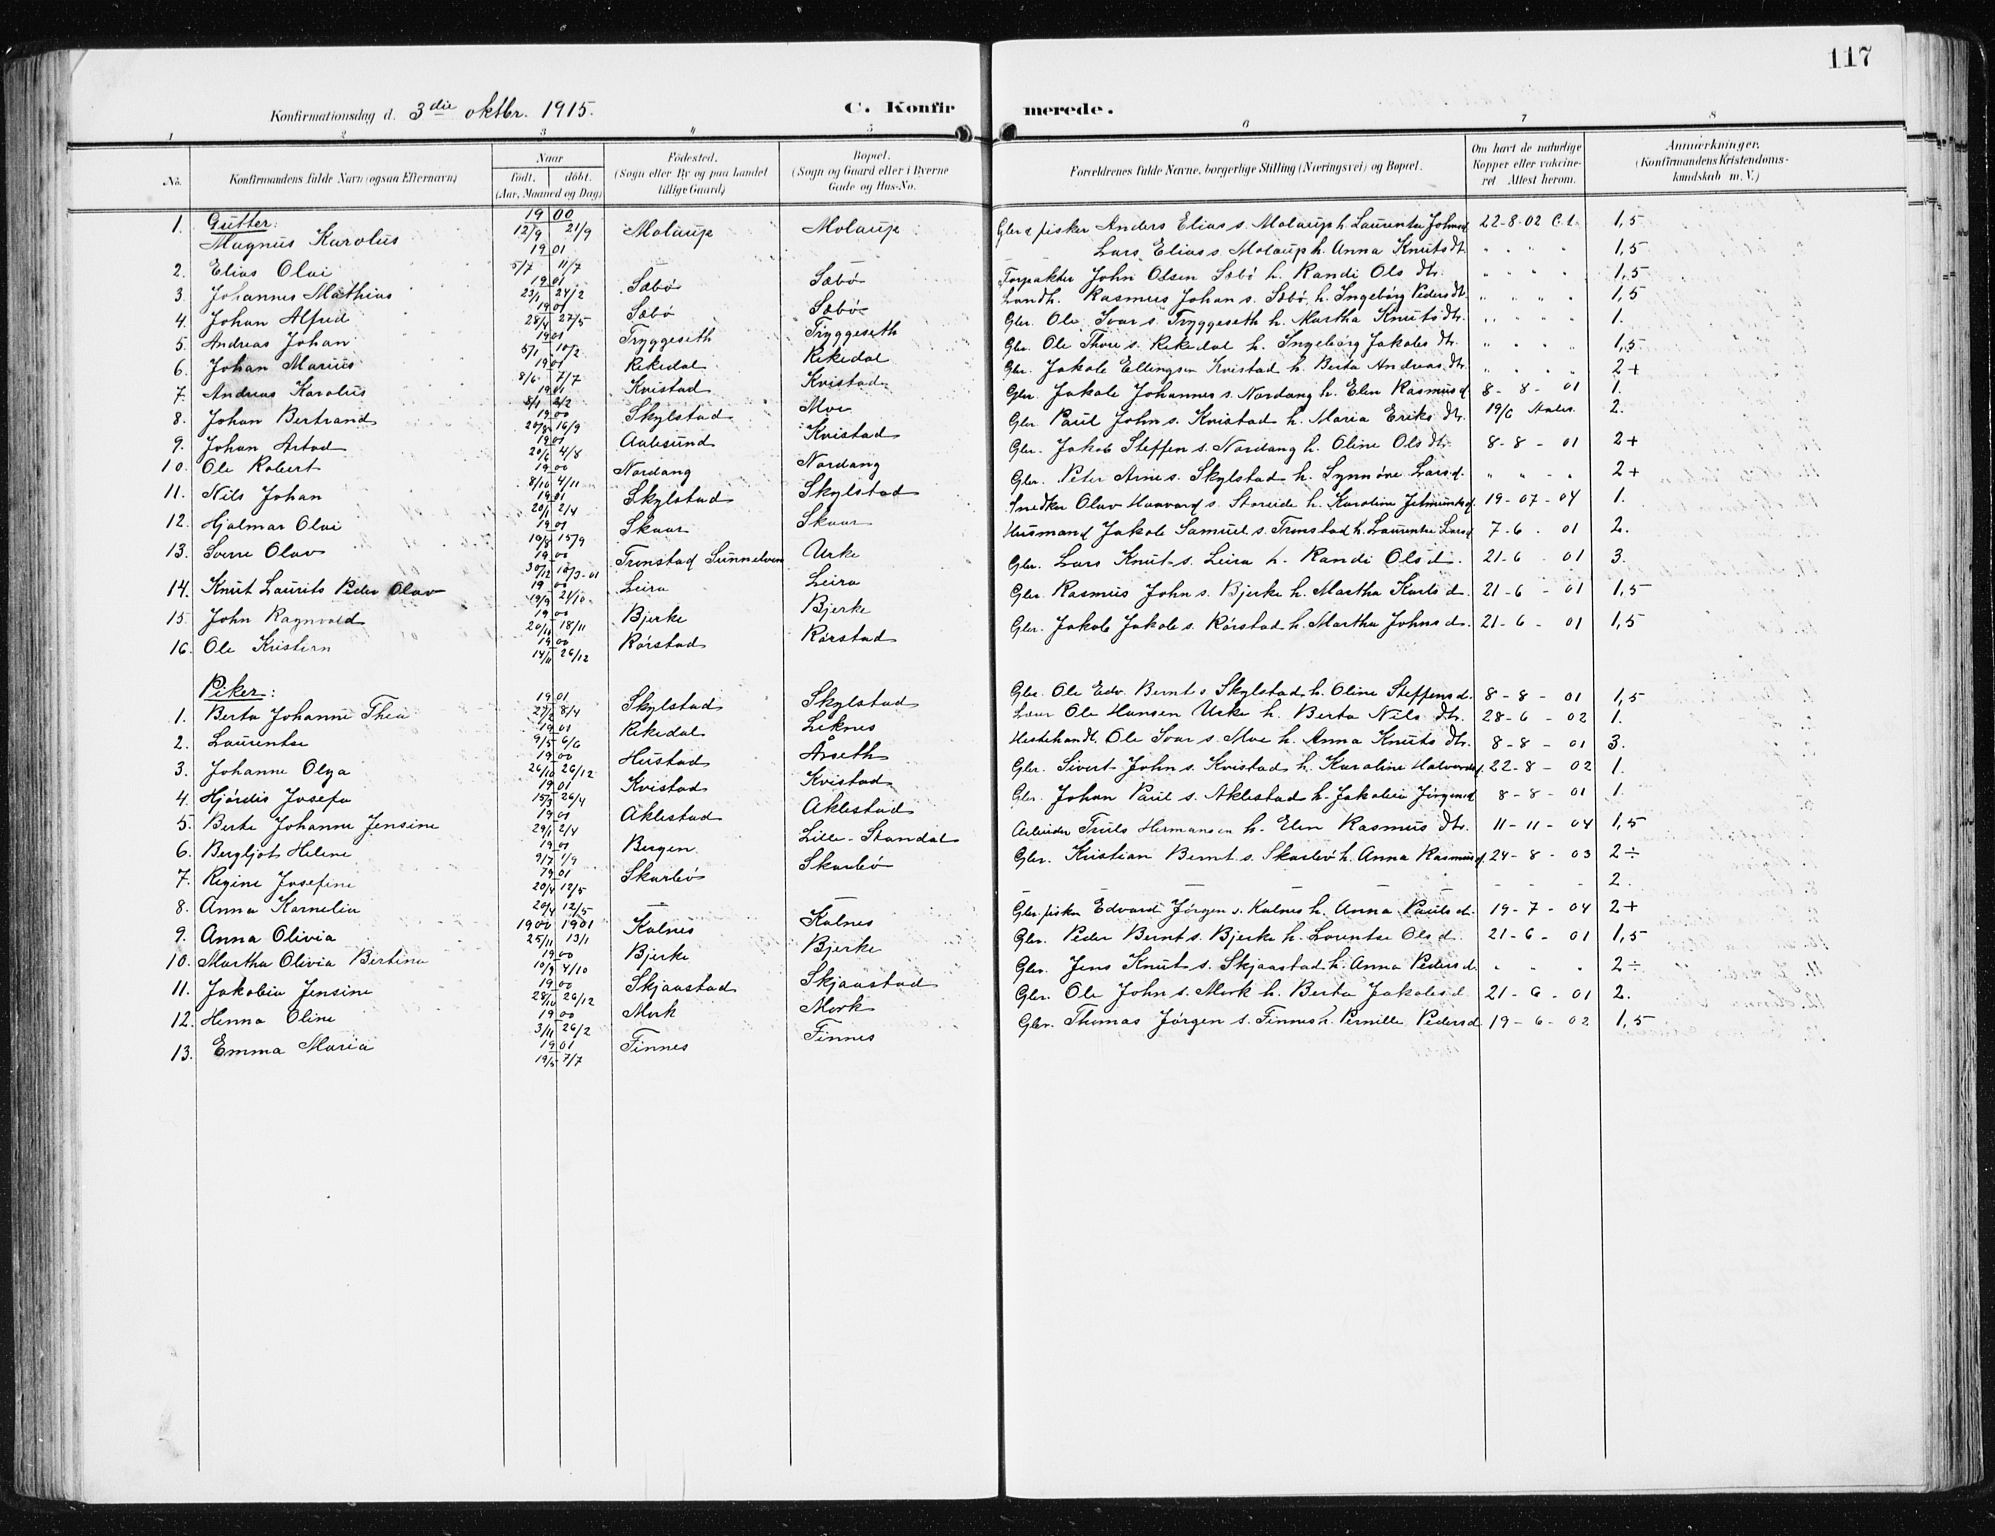 117
Konfirmationsdag d. 3die oktbr. 1915. C. Konfirmerede.
1 2 3 4 5 6 7 8
No. Konfirmandens fulde Navn (ogsaa Efternavn) Naar födt. döbt. (Aar, Maaned og Dag) Födested. (Sogn eller By og paa Landet tillige Gaard) Bopæl. (Sogn og Gaard eller i Byerne Gade og Hus-No. Forældrenes fulde Navne, borgerlige Stilling (Næringsvei) og Bopæl. Om havt de naturlige Kopper eller vaccineret. Attest herom. Anmærkninger. (Konfirmandens Kristendomskundskab m. V.)
Gutter:
1. Magnus Karolus 1900 12/9 21/9 Molaup Molaup Gbr & fisker Anders Elias s. Molaup h. Laurentse Johnsd 22-8-02 1,5
2. Elias Olai 1901 5/7 11/7 — — Lars Elias s. Molaup h. Anna Knutsdtr. " " " 1,5
3. Johannes Mathias 1901 23/1 24/2 Sæbø Sæbø Forpakter John Olsen Sæbö h. Randi Ols dtr. " " " " 1,5
4. Johan Alfred 1901 28/4 27/5 Sæbø Sæbø Landh. Rasmus Johan s. Sæbø h. Ingeborg Pedersdtr. " " " " 1,5
5. Andreas Johan 1901 5/1 10/2 Tryggeseth Tryggeseth Gbr. Ole Ivar s. Tryggeseth h. Martha Knutsdtr. " " " " 1.
6. Johan Marius 1901 8/6 7/7 Rekedal Rekedal Gbr. Ole Thore s. Rekedal h. Ingeborg Jakobs dtr. " " " " 1,5
7. Andreas Karolus 1901 8/1 2/2 Kvistad Kvistad Gbr. Jakob Ellingsen Kvistad h. Berta Andreas dtr. " " " " 2+
8. Johan Bertrand 1900 20/8 16/9 Skylstad Moe Gbr. Jakob Johannes s. Nordang h. Elen Rasmusd 8-8-01 1.
9. Johan Arstad 1901 20/6 4/8 Aalesund Kvistad Gbr. Paul John s. Kvistad h. Maria Eriks dtr. 19/6 2.
10. Ole Robert 1900 8/10 4/11 Nordang Nordang Gbr. Jakob Steffen s. Nordang h. Oline Olsdtr. 8-8-01 2+
11. Nils Johan 1901 20/1 2/4 Skylstad Skylstad Gbr. Peter Arne s. Skylstad h. Synnøve Larsd. " " " 2+
12. Hjalmar Olai 1901 19/8 15/9 Skaar Skaar Snedker Olav Haavard s. Storeide h. Karoline Jetmundsd. 19-07-04 1.
13. Sverre Olav 1900 30/12 10/3-01 Tronstad Sunnelven Urke Husmand Jakob Samuel s. Tronstad h. Laurentse Larsd 7-6-01 2.
14. Knut Laurits Peder Olav 1900 19/9 21/10 Leira Leira Gbr. Lars Knut s. Leira h. Randi Olsd. 21-6-01 3.
15. John Ragnvald 1900 20/10 18/11 Bjerke Bjerke Gbr. Rasmus John s. Bjerke h. Martha Karls d. 21-6-01 1,5
16. Ole Kristian 1900 14/11 26/12 Rørstad Rørstad Gbr. Jakob Jakob s. Rørstad h. Martha Johns d. 21-6-01 1,5
Piker:
1. Berta Johanne Thea 1901 27/2 8/4 Skylstad Skylstad Gbr. Ole Edv. Bernt s. Skylstad h. Oline Steffensd. 8-8-01 1,5
2. Laurentse 1901 9/5 6/6 Rekedal Leknes Lærer Ole Hansen Urke h. Berta Nils dtr. 28-6-02 1.
3. Johanne Olga 1900 26/10 26/12 Hustad Aarseth Hestehandl. Ole Ivar s. Moe h. Anna Knuts dtr. 8-8-01 3.
4. Hjørdis Josefa 1901 15/3 26/4 Kvistad Kvistad Gbr. Sivert John s. Kvistad h. Karoline Halvordsd. 22-8-02 1.
5. Berte Johanne Jensine 1901 29/1 2/4 Aklestad Aklestad Gbr. Johan Paul s. Aklestad h. Jakobia Jörgensd 8-8-01 1.
6. Bergljot Helene 1901 9/7 1/9 Bergen Lille-Standal Arbeider Truls Hermansen h. Elen Rasmus dtr. 11-11-04 1,5
7. Regine Josefine 1901 20/4 12/5 Skarbø Skarbø Gbr. Kristian Bernt s. Skarbø h. Anna Rasmusd. 24-8-03 2÷
8. Anna Kornelia 20/4 12/5 — — — — — — - - - 2.
9. Anna Olivia 1900 1901 25/11 13/1 Kolnes Kolnes Gbr. fisker Edvard Jørgen s. Kolnes h. Anna Pauls d. 19-7-04 2+
10. Martha Olivia Bertina 1900 10/9 4/10 Bjerke Bjerke Gbr. Peder Bernt s. Bjerke h. Lorentse Ols d. 21-6-01 1,5
11. Jakobia Jensine 1900 28/10 26/12 Skjaastad Skjaastad Gbr. Jens Knut s. Skjaastad h. Anna Peders d. " " " 2÷
12. Henna Oline 1900 3/11 26/2 Mork Mork Gbr. Ole John s. Mork h. Berta Jakobsd 21-6-01 2.
13. Emma Maria 1901 19/5 7/7 Finnes Finnes Gbr. Thomas Jørgen s. Finnes h. Pernille Pedersd. 19-6-02 1,5